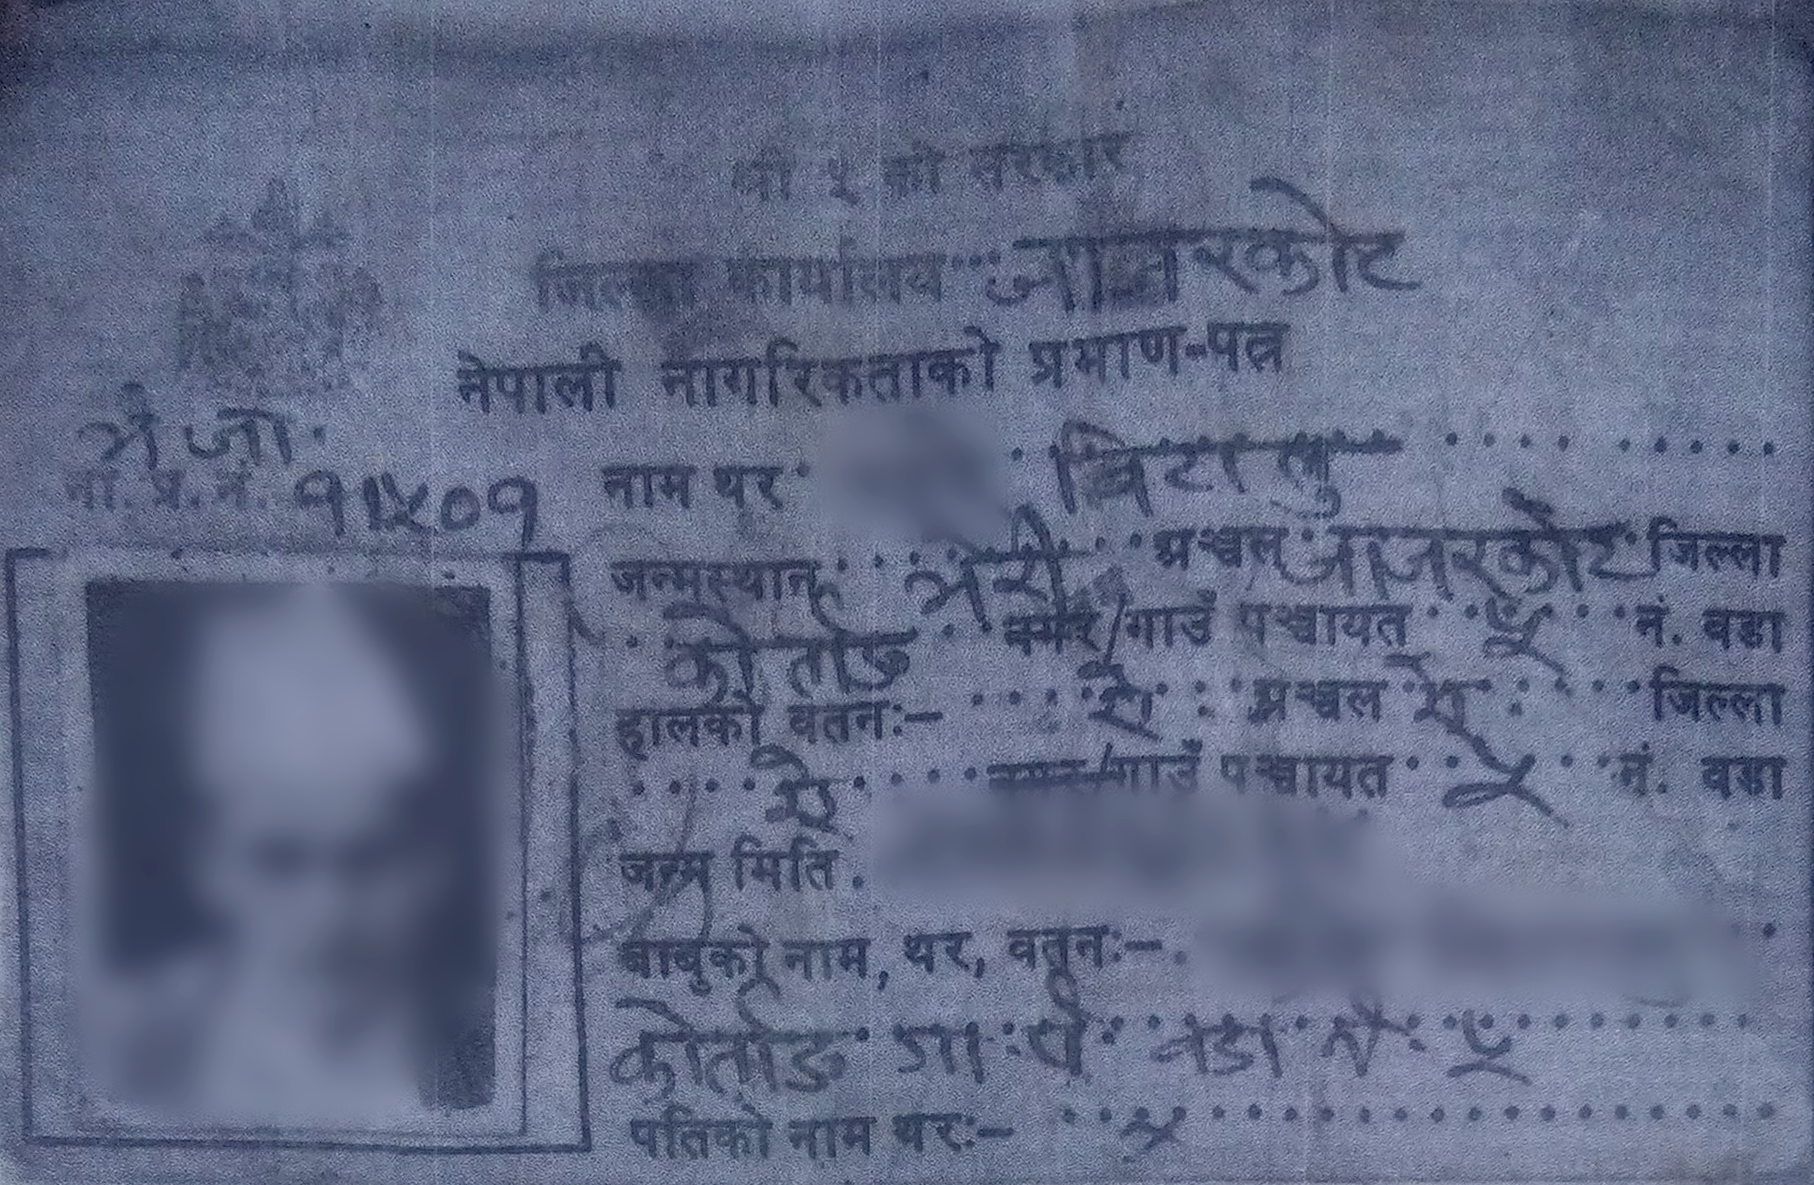 श्री ५ को सरकार
जिल्ला कार्यालय जाजरकोट
नेपाली नागरिकताको प्रमाण-पत्र
भे. जा.
ना. प्र. नं. ११५०१
नाम थर
जन्मस्थान भेरी अञ्चल जाजरकोट जिल्ला
कोर्ताङ नगर/गाउँ पञ्चायत ५ नं. वडा
हालको वतनः– ऐ अञ्चल ऐ जिल्ला
ऐ नगर/गाउँ पञ्चायत ५ नं. वडा
जन्म मिति
बाबुको नाम, थर, वतनः–
कोर्ताङ गा. पं. वडा नं. ५
पतिको नाम थरः– ×